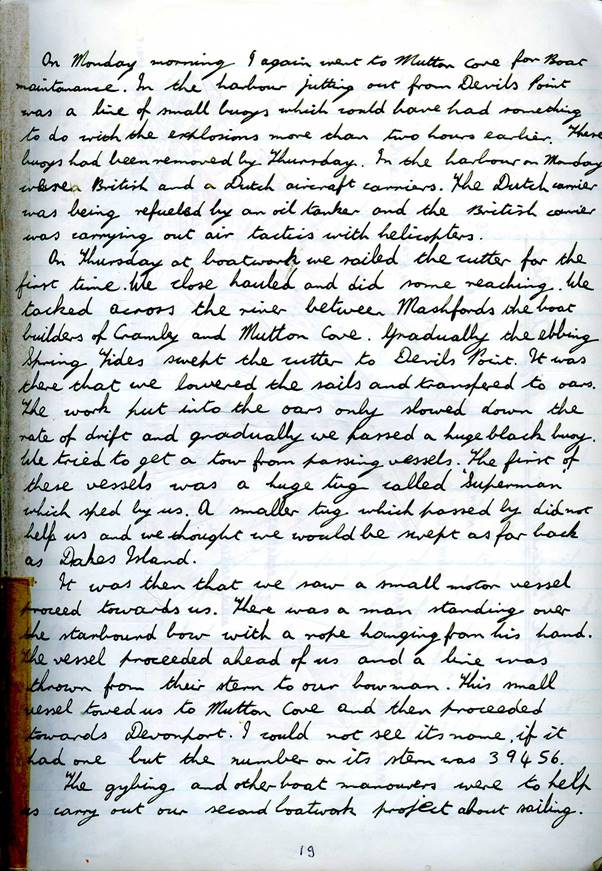 On Monday morning I again went to Mutton Cove for Boat
maintanance. In the harbour jutting out from Devils Point
was a line of small buoys which could have had something
to do with the explosions more than two hours earlier. These
buoys had been removed by Thursday. In the harbour on Monday
were a British and a Dutch aircraft carriers. The Dutch carrier
was being refueled by an oil tanker and the British carrier
was carrying out air tactics with helicopters.
On Thursday at boatwork we sailed the cutter for the
first time. We close hauled and did some reaching. We
tacked across the river between Mashfords the boat
builders of Cramby and Mutton Cove. Gradually the ebbing
Spring Tides swept the cutter to Devils Point. It was
there that we lowered the sails and transfered to oars.
The work put into the oars only slowed down the
rate of drift and gradually we passed a huge black buoy.
We tried to get a tow from passing vessels. The first of
these vessels was a huge tug called 'Superman
which sped by us. A smaller tug which passed by did not
help us and we thought we would be swept as far back
as Dakes Island.
It was then that we saw a small motor vessel
proceed towards us. There was a man standing over
the starbound bow with a rope hanging from his hand.
The vessel proceeded ahead of us and a line was
thrown from their stern to our bowman. This small
vessel towed us to Mutton Cove and then proceeded
towards Devonport. I could not see its name, if it
had one but the number on its stern was 39456.
The gybing and other boat manouvers were to help
us carry out our second boatwork project about sailing.
19